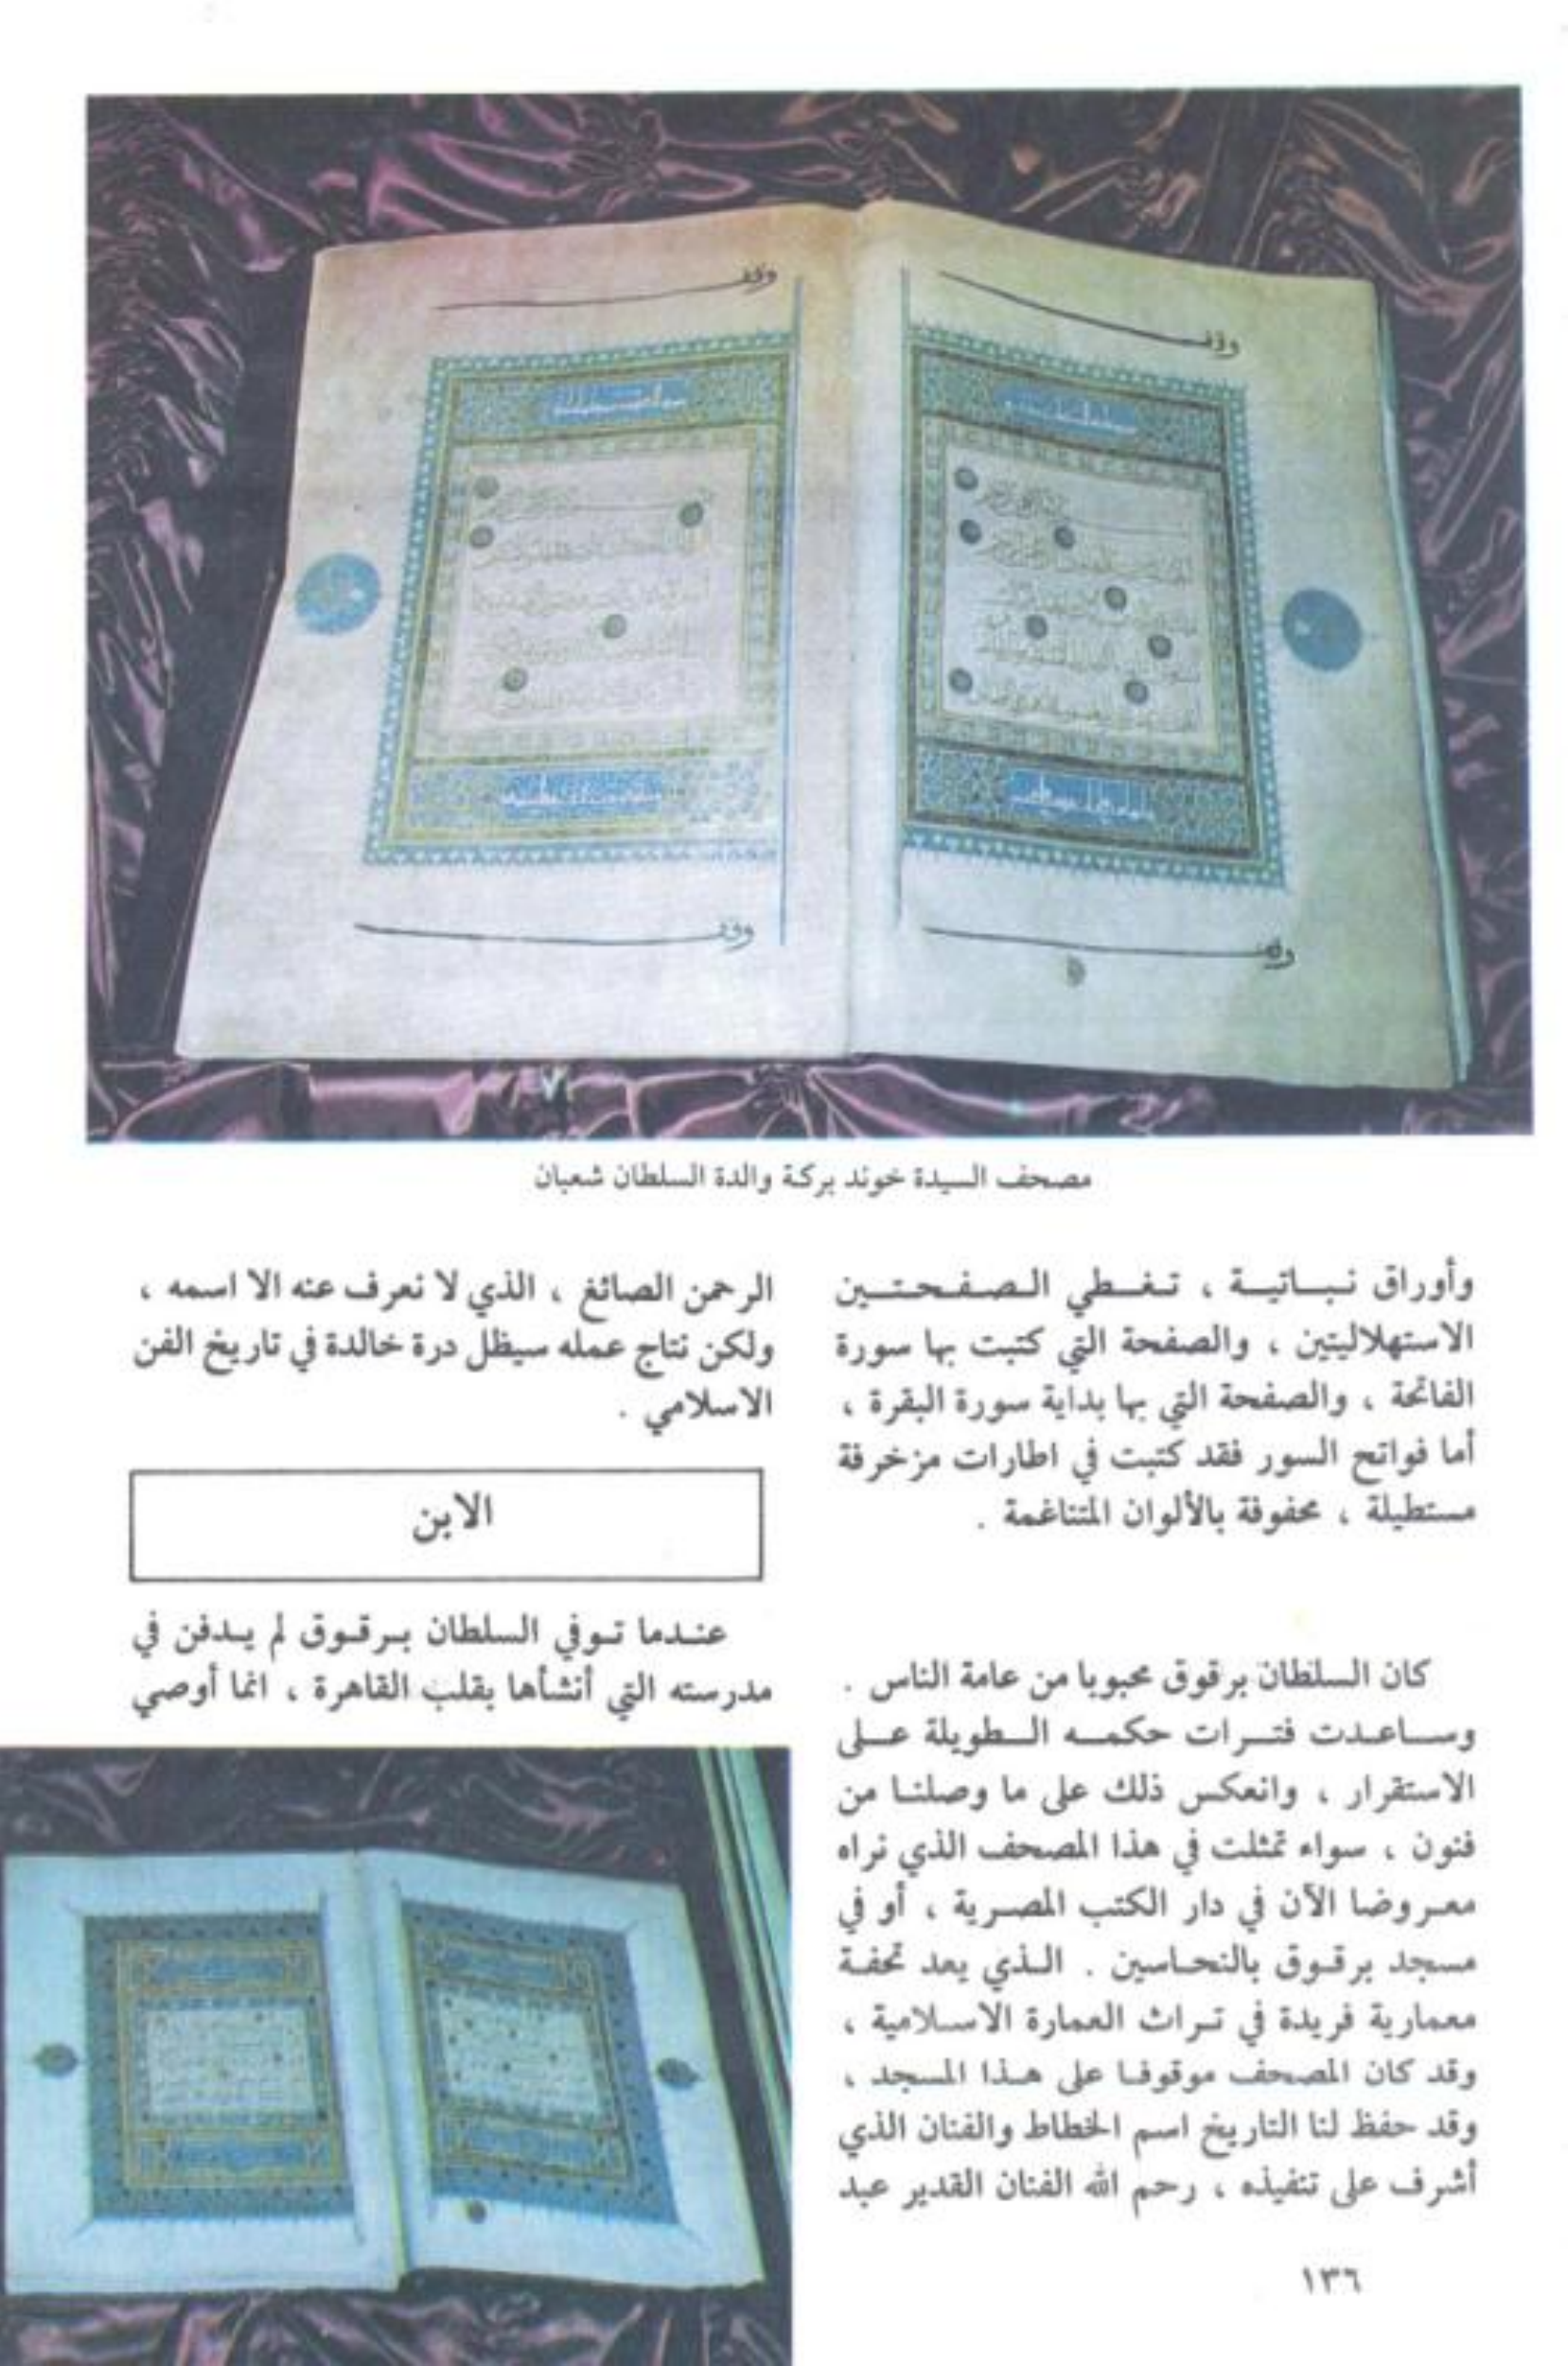 وقف
وقف
وقف
وقف
مصحف السيدة خوند بركة والدة السلطان شعبان
وأوراق نـبـاتيـة ، تـغـطي الـصـفـحـتـين
الاستهلاليتين ، والصفحة التي كتبت بها سورة
الفاتحة ، والصفحة التي بها بداية سورة البقرة ،
أما فواتح السور فقد كتبت في اطارات مزخرفة
مستطيلة ، محفوفة بالألوان المتناغمة .
كان السلطان برقوق محبوبا من عامة الناس .
وساعدت فترات حكمه الطويلة على
الاستقرار ، وانعكس ذلك على ما وصلنا من
فنون ، سواء تمثلت في هذا المصحف الذي نراه
معروضا الآن في دار الكتب المصرية ، أو في
مسجد برقوق بالنحاسين . الذي يعد تحفة
معمارية فريدة في تراث العمارة الاسلامية ،
وقد كان المصحف موقوفا على هذا المسجد ،
وقد حفظ لنا التاريخ اسم الخطاط والفنان الذي
أشرف على تنفيذه ، رحم الله الفنان القدير عبد
الرحمن الصائغ ، الذي لا نعرف عنه الا اسمه ،
ولكن نتاج عمله سيظل درة خالدة في تاريخ الفن
الاسلامي .
الابن
عندما توفي السلطان برقوق لم يدفن في
مدرسته التي أنشأها بقلب القاهرة ، انما أوصي
١٣٦